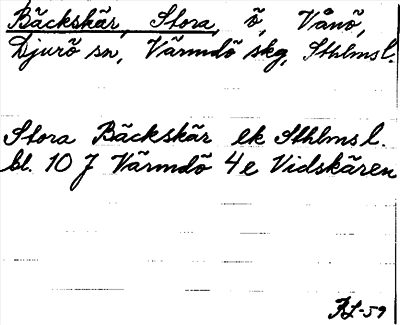 Bäckskär, Stora, ö, Vånö,
Djurö sn, Värmdö skg, Sthlms l.
Stora Bäckskär ek Sthlms l.
bl. 10 J Värmdö 4e Vidskären
RL-59